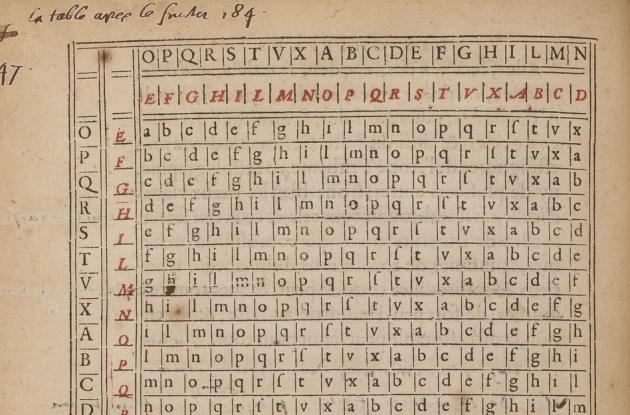 la table apres le 184.
47
O P Q R S T V X A B C D E F G H I L M N
E F G H I L M N O P Q R S T V X A B C D
O E a b c d e f g h i l m n o p q r ſ t v x
P F b c d e f g h i l m n o p q r ſ t v x a
Q G c d e f g h i l m n o p q r ſ t v x a b
R H d e f g h i l m n o p q r ſ t v x a b c
S I e f g h i l m n o p q r ſ t v x a b c d
T L f g h i l m n o p q r ſ t v x a b c d e
V M g h i l m n o p q r ſ t v x a b c d e f
X N h i l m n o p q r ſ t v x a b c d e f g
A O i l m n o p q r ſ t v x a b c d e f g h
B P l m n o p q r ſ t v x a b c d e f g h i
C Q m n o p q r ſ t v x a b c d e f g h i l
D R n o p q r ſ t v x a b c d e f g h i l m